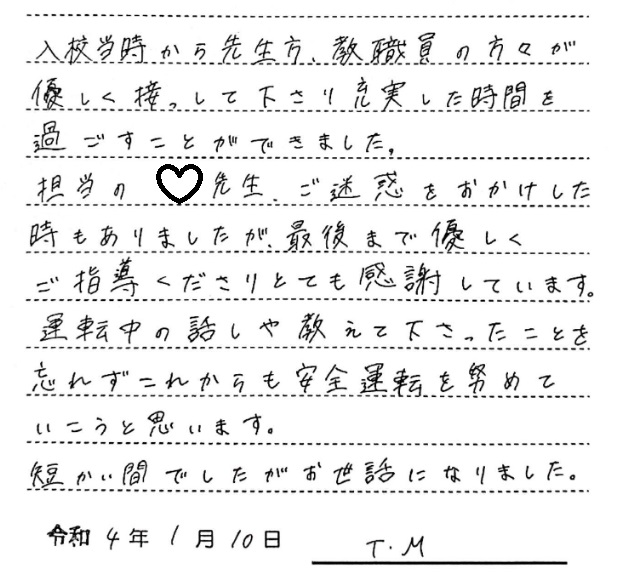 入校当時から先生方、教職員の方々が
優しく接っして下さり充実した時間を
過ごすことができました。
担当の 先生、ご迷惑をおかけした
時もありましたが、最後まで優しく
ご指導くださりとても感謝しています。
運転中の話しや教えて下さったことを
忘れずこれからも安全運転を努めて
いこうと思います。
短かい間でしたがお世話になりました。
令和 4年 1月 10日 T.M